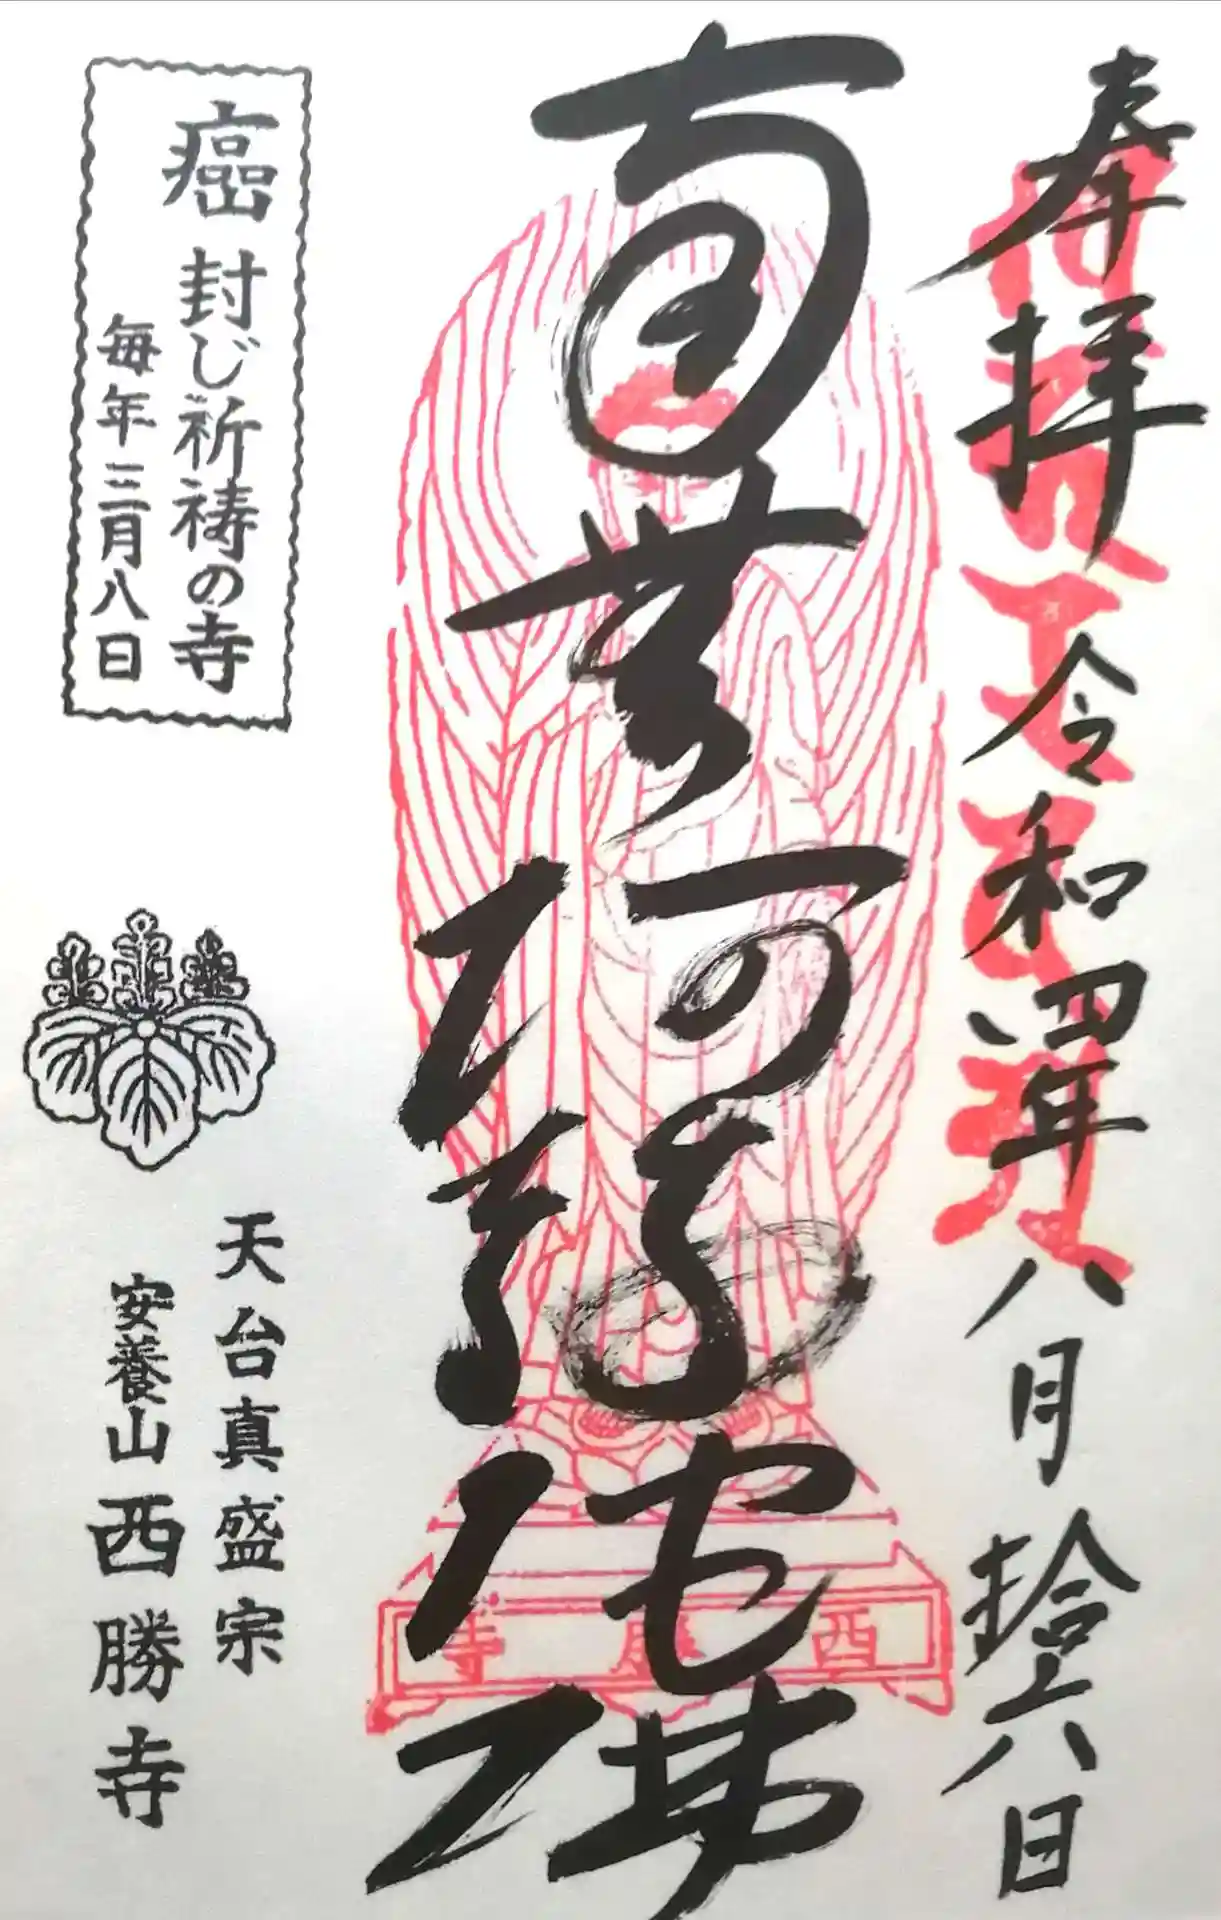 奉拝
令和四年八月拾六日
南無阿弥陀佛
西勝寺
癌封じ祈祷の寺
毎年三月八日
天台真盛宗
安養山西勝寺